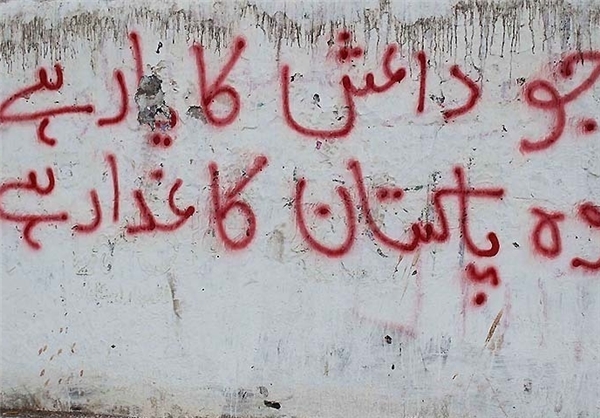 جو داعش کا یار ہے
وہ پاکستان کا غدار ہے